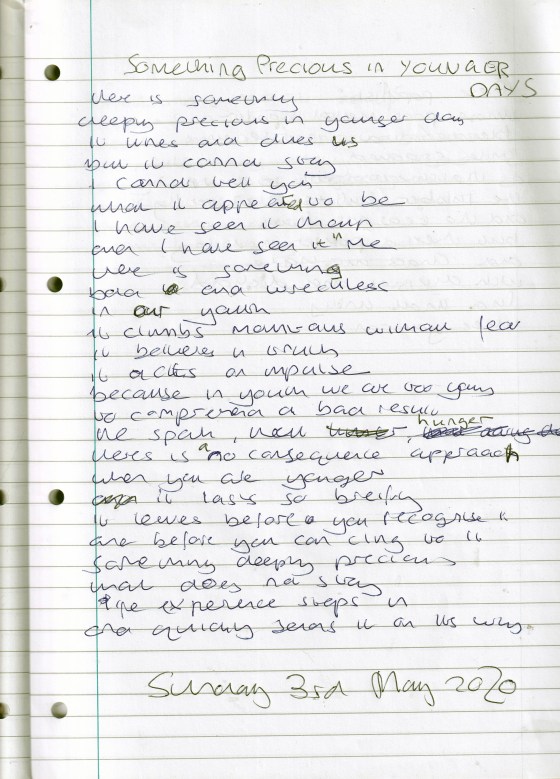 Something Precious in YOUNGER
DAYS
there is something
deeply precious in younger day
it lines and dives us
but it cannot stay
I cannot tell you
what it appeared to be
I have seen it in
and I have seen it in me
there is something
bold and wreckless
in our youth
it climbs mountains without fear
it believes in truth
it acts on impulse
because in youth we are too young
to comprehend a bad result
the spark, hunger
theres is a no consequence approach
when you are younger
it lasts so breifly
it leaves before you recognise it
and before you can cling to it
something deeply precious
that does not stay
life experience steps in
and quickly sends it on its way.
Sunday 3rd May 2020